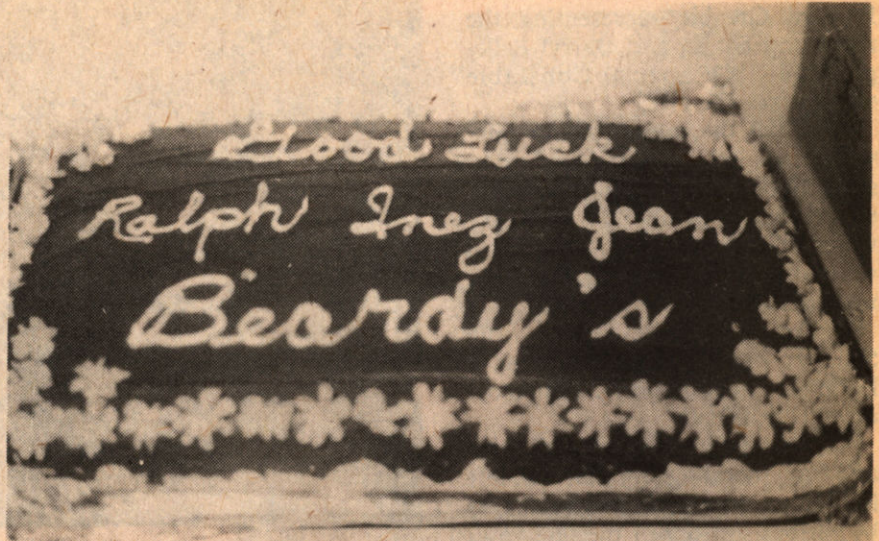 Good Luck
Ralph Inez Jean
Beardy's